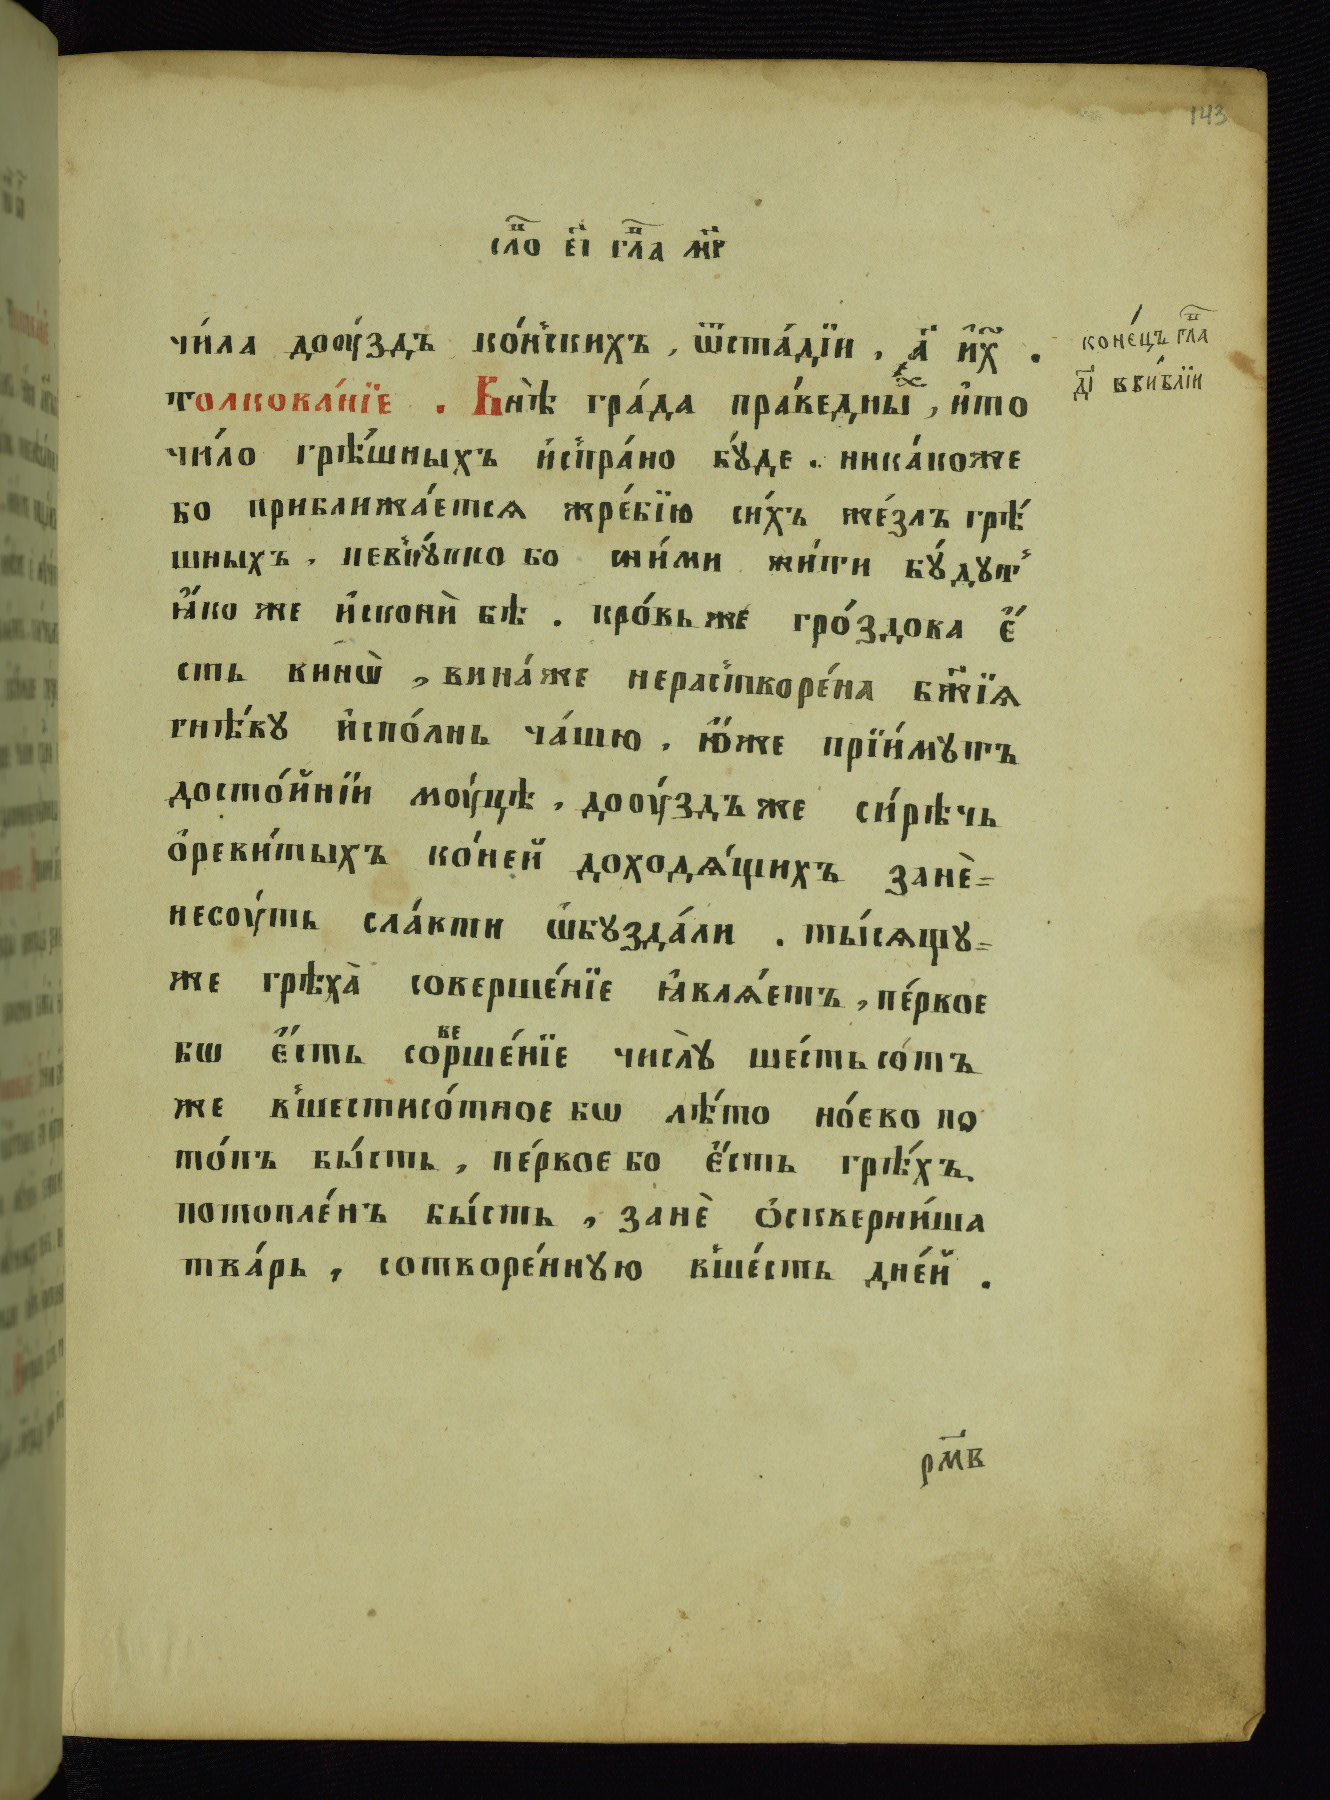 143
сло́ е҃і гла̀ м҃г
чи́ла дооу́здъ ко́нскихъ, ѿста́дїи, а҃ и҃х .
толкова́нїе . Внѣ̀ гра́да пра́ведных, и҆то
чи́ло грѣ́шныхъ и҆спра́но бу́де . ника́коже
бо приближа́етсѧ жре́бїю си́хъ же́злъ грѣ́
шныхъ . невку́пно бо сни́ми жи́ти бу́дут
ꙗ҆́ко же и҆сконѝ бѣ . кро́вь же гро́здова е҆́
сть винѡ̀, вина́же нерастворе́на бж҃їѧ
гнѣ́ву и҆спо́лнь ча́шю . ю҆́же прїи́мутъ
досто́йнїи моу́цѣ . дооу́здъ же си́рѣчь
ѻ҆реви́тыхъ ко́ней доходѧ́щихъ занѐ=
несоу́ть сла́сти ѡ҆бузда́ли . ты́сѧщу=
же грѣха̀ соверше́нїе ꙗ҆влѧ́етъ, пе́рвое
бѡ е҆́сть соверше́нїе числу̀ ше́стьсо́тъ
же вшестисо́тное бѡ лѣ́то но́ево по
то́пъ бы́сть, пе́рвое бо е҆́сть грѣ́хъ.
потопле́нъ бы́сть, занѐ ѻ҆скверни́ша
тва́рь, сотворе́нную вше́сть дне́й .
коне́цъ гла
д҃і вби́блїи
рм҃в